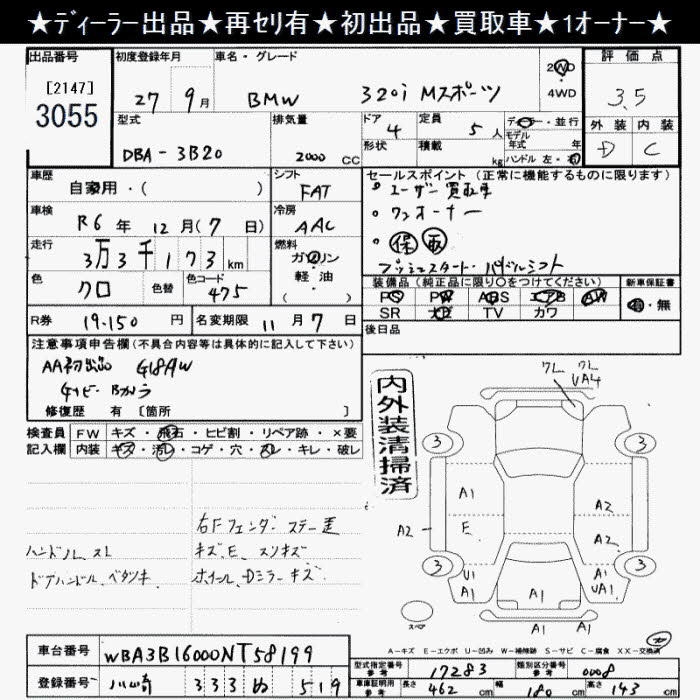 ★ディーラー出品★再セリ有★初出品★買取車★1オーナー★
出品番号 初度登録年月 車名・グレード 2WD ・ 4WD 評価点
[2147]
3055
27 9月 BMW 320i Mスポーツ 3.5
型式 排気量 ドア 定員 ディーラー・並行 外装 内装
DBA-3B20 2000 CC 4 5人 モデル年式 年 D C
形状 積載 kg ハンドル 左・右
車歴 シフト セールスポイント (正常に機能するものに限ります)
自家用・( ) FAT ユーザー買取車
車検 冷房 ワンオーナー
R6年 12月(7日) AAC 保 取
走行 燃料
3万3千173km ガソリン・軽油・( ) プッシュスタート・パドルシフト
色 色替 色コード 装備品 (純正品に限り○をつけてください) 新車保証書
クロ 475 PS PW ABS エアB AW 有・無
SR ナビ TV カワ
R券 19.150円 名変期限 11月7日 後日品
注意事項申告欄 (不具合内容等は具体的に記入して下さい)
AA初出品 G18AW
ナビ・Bカメラ
修復歴 有 [箇所 ]
検査員記入欄 FW キズ・飛石・ヒビ割・リペア跡・×要
内装 キズ・汚レ・コゲ・穴・スレ・キレ・破レ
右Fフェンダーステー歪
ハンドル スレ キズ、E、スリキズ
ドアハンドル、ベタツキ ホイール、Dミラーキズ
内外装清掃済
ワレ
ワレ
UA4
3 3
A1 A2
A2 E A2
3 3
U1 A1
A1 UA1
A1 A1
スペア
A-キズ E-エクボ U-凹み W-補修跡 S-サビ C-腐食 XX-交換済
車台番号 WBA3B16000NT58199
登録番号 川崎 333 ぬ 519
型式指定番号 参考 17283 類別区分番号 参考 0008
車庫証明用 参考 長さ 462cm 幅 180cm 高さ 143cm